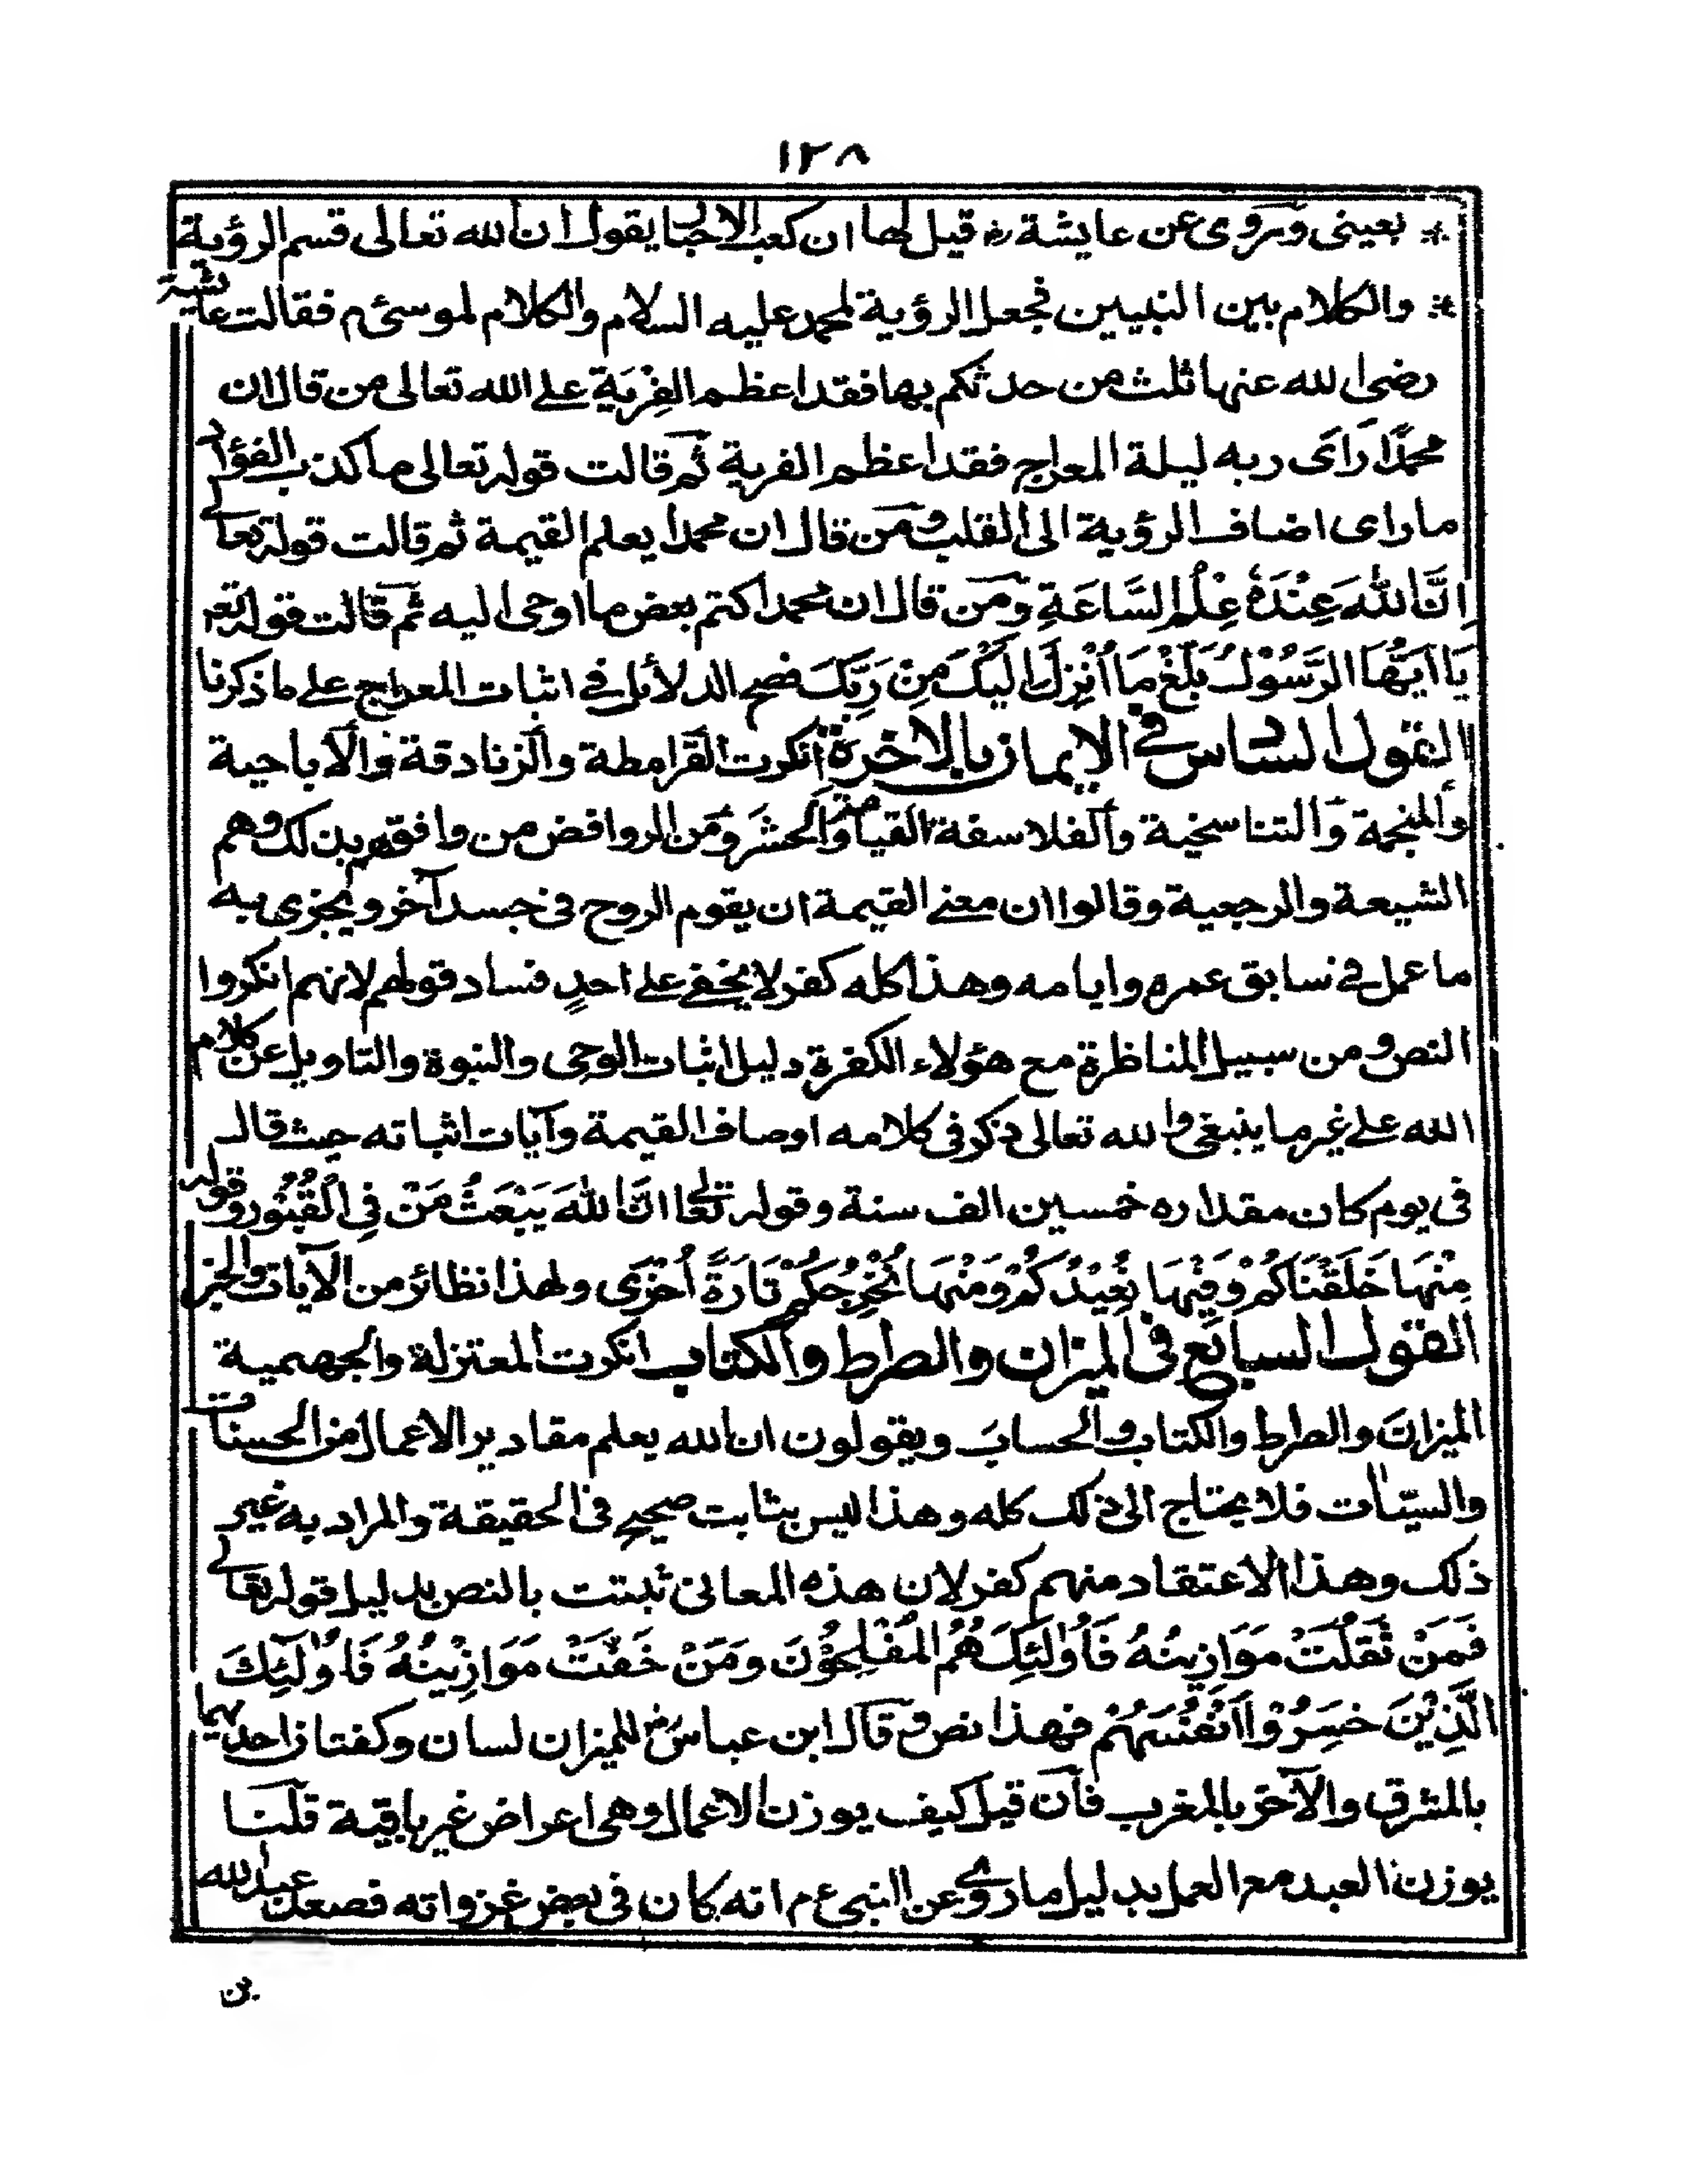 ١٢٨
* بعينى وروى عن عايشة رض قيل لها ان كعب الاحبار يقول ان الله تعالى قسم الرؤية
* والكلام بين النبيين فجعل الرؤية لمحمد عليه السلام والكلام لموسى م فقالت عائشة
رضى الله عنها ثلث من حدثكم بها فقد اعظم الفِرْيَة على الله تعالى من قال ان
محمدًا رأى ربه ليلة المعراج فقد اعظم الفرية ثم قالت قوله تعالى ما كذب الفؤاد
ما راى اضاف الرؤية الى القلب ومن قال ان محمدا يعلم القيمة ثم قالت قوله تعالى
اِنَّ اللهَ عِنْدَهُ عِلْمُ السَّاعَةِ ومن قال ان محمدا كتم بعض ما اوحى اليه ثم قالت قوله تع
يَا اَيُّهَا الرَّسُوْلُ بَلِّغْ مَا اُنْزِلَ اِلَيْكَ مِنْ رَبِّكَ فصح الدلائل فى اثبات المعراج على ما ذكرنا
القول السادس فى الايمان بالاخرة انكرت القرامطة والزنادقة والاباحية
والمنجمة والتناسخية والفلاسفة القيامة والحشر ومن الروافض من وافقهم بذلك وهم
الشيعة والرجعية وقالوا ان معنى القيمة ان يقوم الروح فى جسد آخر ويجزى به
ما عمل فى سابق عمره وايامه وهذا كله كفر لا يخفى على احدٍ فساد قولهم لانهم انكروا
النص ومن سبيل المناظرة مع هؤلاء الكفرة دليل اثبات الوحى والنبوة والتاويل عن كلام
الله على غير ما ينبغى والله تعالى ذكر فى كلامه اوصاف القيمة وآيات اثباته حيث قال
فى يوم كان مقداره خمسين الف سنة وقوله تعالى اِنَّ اللهَ يَبْعَثُ مَنْ فِى الْقُبُوْر وقوله
مِنْهَا خَلَقْنَاكُمْ وَفِيْهَا نُعِيْدُكُمْ وَمِنْهَا نُخْرِجُكُمْ تَارَةً اُخْرَى ولهذا نظائر من الآيات والخبر
القول السابع فى الميزان والصراط والكتاب انكرت المعتزلة والجهمية
الميزان والصراط والكتاب والحساب ويقولون ان الله يعلم مقادير الاعمال من الحسنات
والسيّئات فلا يحتاج الى ذلك كله وهذا ليس بثابت صحيح فى الحقيقة والمراد به غير
ذلك وهذا الاعتقاد منهم كفر لان هذه المعانى ثبتت بالنص بدليل قوله تعالى
فَمَنْ ثَقُلَتْ مَوَازِينُهُ فَأُولٰئِكَ هُمُ الْمُفْلِحُوْنَ وَمَنْ خَفَّتْ مَوَازِيْنُهُ فَاُولٰئِكَ
الَّذِيْنَ خَسِرُوْا اَنْفُسَهُمْ فهذا نص وقال ابن عباس رض للميزان لسان وكفتان احديهما
بالمشرق والآخر بالمغرب فان قيل كيف يوزن الاعمال وهى اعراض غير باقية قلنا
يوزن العبد مع العمل بدليل ما روى عن النبى ع م انه كان فى بعض غزواته فصعد عبد الله
بن